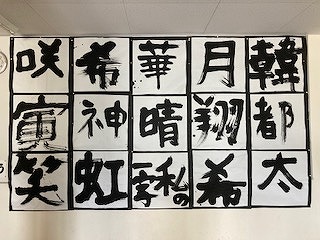 咲 希 華 月 韓
寅 神 晴 翔 都
笑 虹 私の一字 希 太